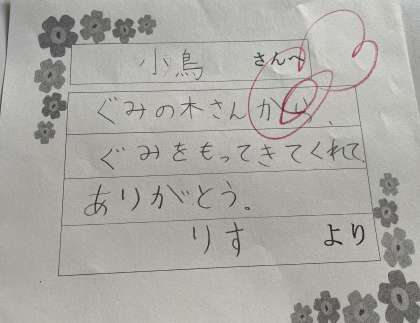 小鳥 さんへ
ぐみの木さんから、
ぐみをもってきてくれて、
ありがとう。
りす より